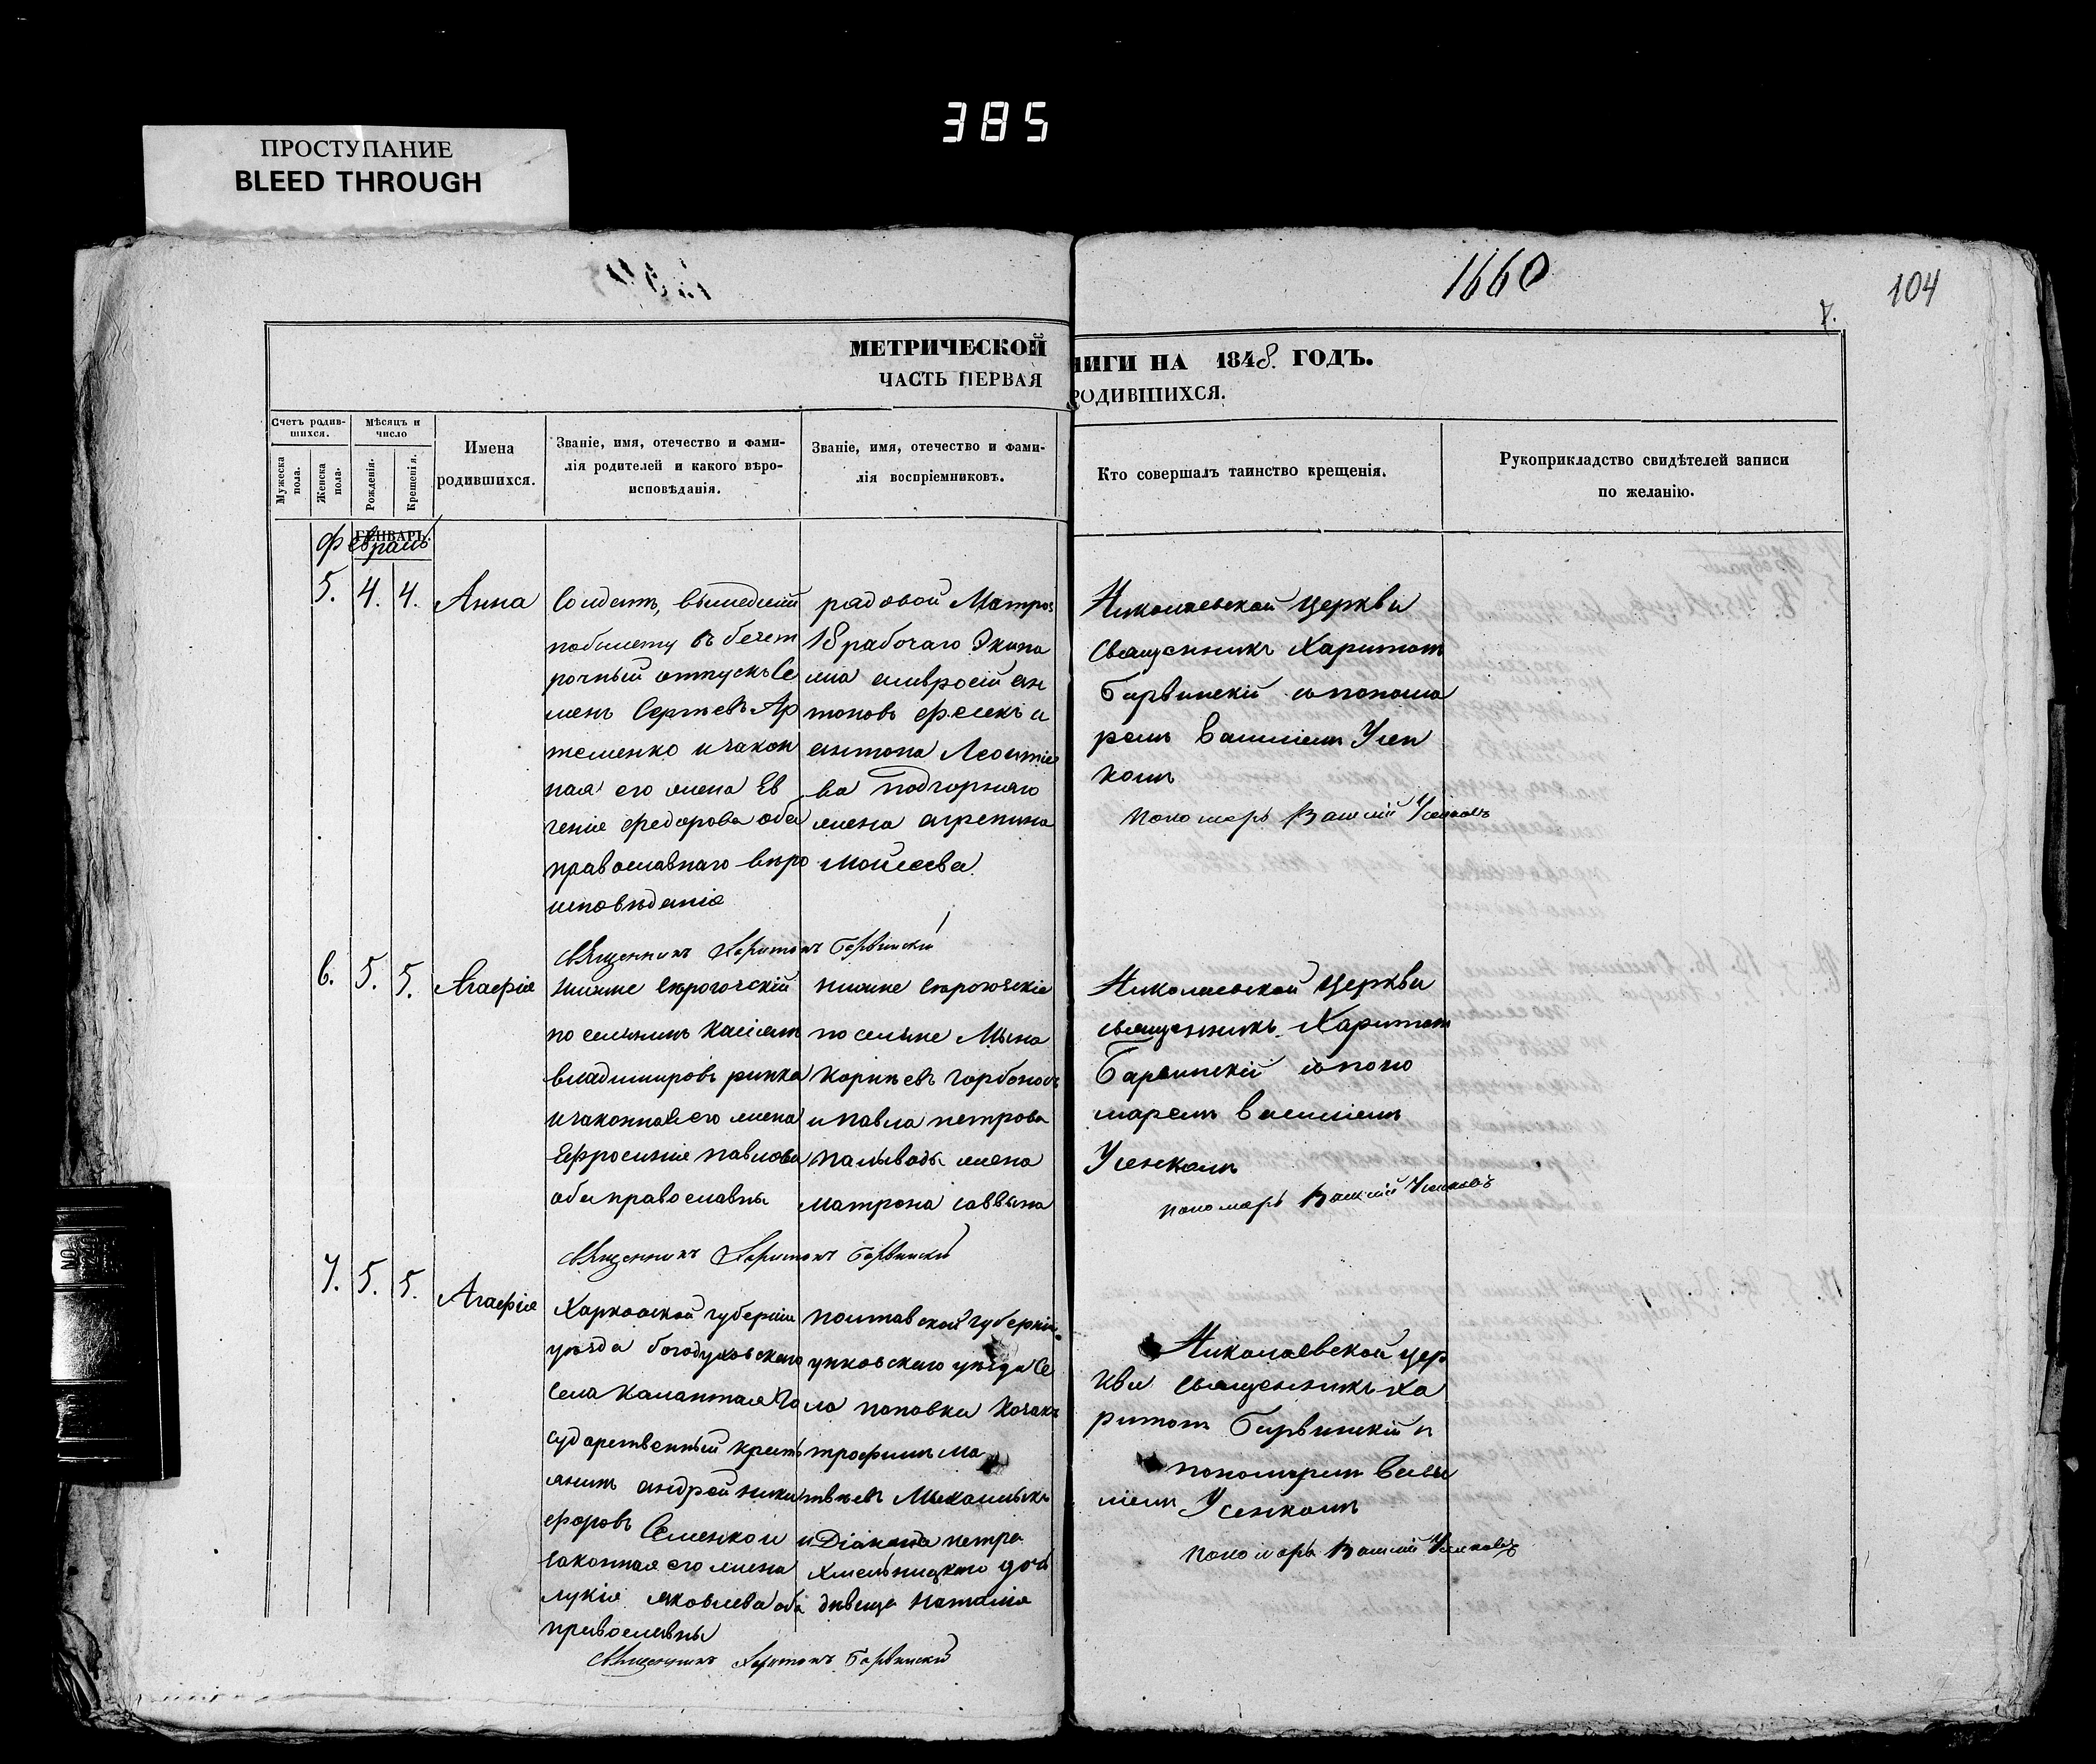 385
ПРОСТУПАНИЕ
BLEED THROUGH
1660
104
7.
МЕТРИЧЕСКОЙ
НИГИ НА 1848. ГОДЪ.
ЧАСТЬ ПЕРВАЯ
РОДИВШИХСЯ.
Счетъ родив-
шихся.
Мужеска
пола.
Женска
пола.
Мѣсяцъ и
число
Рожденія.
Крещенія.
Имена
родившихся.
Званіе, имя, отечество и фами-
лія родителей и какого вѣро-
исповѣданія.
Званіе, имя, отечество и фами-
лія воспріемниковъ.
Кто совершалъ таинство крещенія.
Рукоприкладство свидѣтелей записи
по желанію.
ГЕНВАРЬ.
Февраль
5. 4. 4. Анна
Солдатъ, вышедшій
побилету въ безсm
рочный отпускъ Се
менъ Сергѣевъ Ар
теменко и закон
ная его жена Ев
генія Федорова оба
православнаго вѣро
исповѣданія
рядовой Матроз
18 рабочаго Экипа
жа амвросій ан
тоновъ и
антона Леонтіе
ва подгорнаго
жена агрепина
Моисеева
Николаевской церкви
Священникъ Харитон
Барвинскій с понома
ремъ Василіем Усен
комъ
Пономарь Василій Усенковъ
Священникъ Харитонъ Барвинскій
6. 5. 5. Агафія
Нижне Сѣрогозскій
поселянинъ Касіян
владимировъ рипка
и законная его жена
Ефросинія павлова
оба православны
Нижне Сѣрогозскіе
поселяне Мина
Корнѣевъ Горбонос
и павла петрова
паливоды жена
матрона саввина
Николаевской Церкви
священникъ Харитон
Барвинскій с поно
маремъ Василіем
Усенкомъ
пономарь Василій Усенковъ
Священникъ Харитонъ Барвинскій
7. 5. 5. Агафія
Харковской губерніи
уѣзда богодуховскаго
села Калантаева го
сударственный крест
янинъ андрей ники
форовъ Семенко и
законная его жена
лукія яковлева оба
православны
полтавской губерніи
уѣзда се
ла поповки Козакъ
трофимъ Ма
твѣевъ
и Діакона петра
Хмельницкаго дочь
дѣвица Наталія
Николаевской цер
кви священникъ Ха
ритонъ Барвинскій и
пономарем васи
ліем Усенкомъ
пономарь Василій Усенковъ
Священникъ Харитонъ Барвинскій